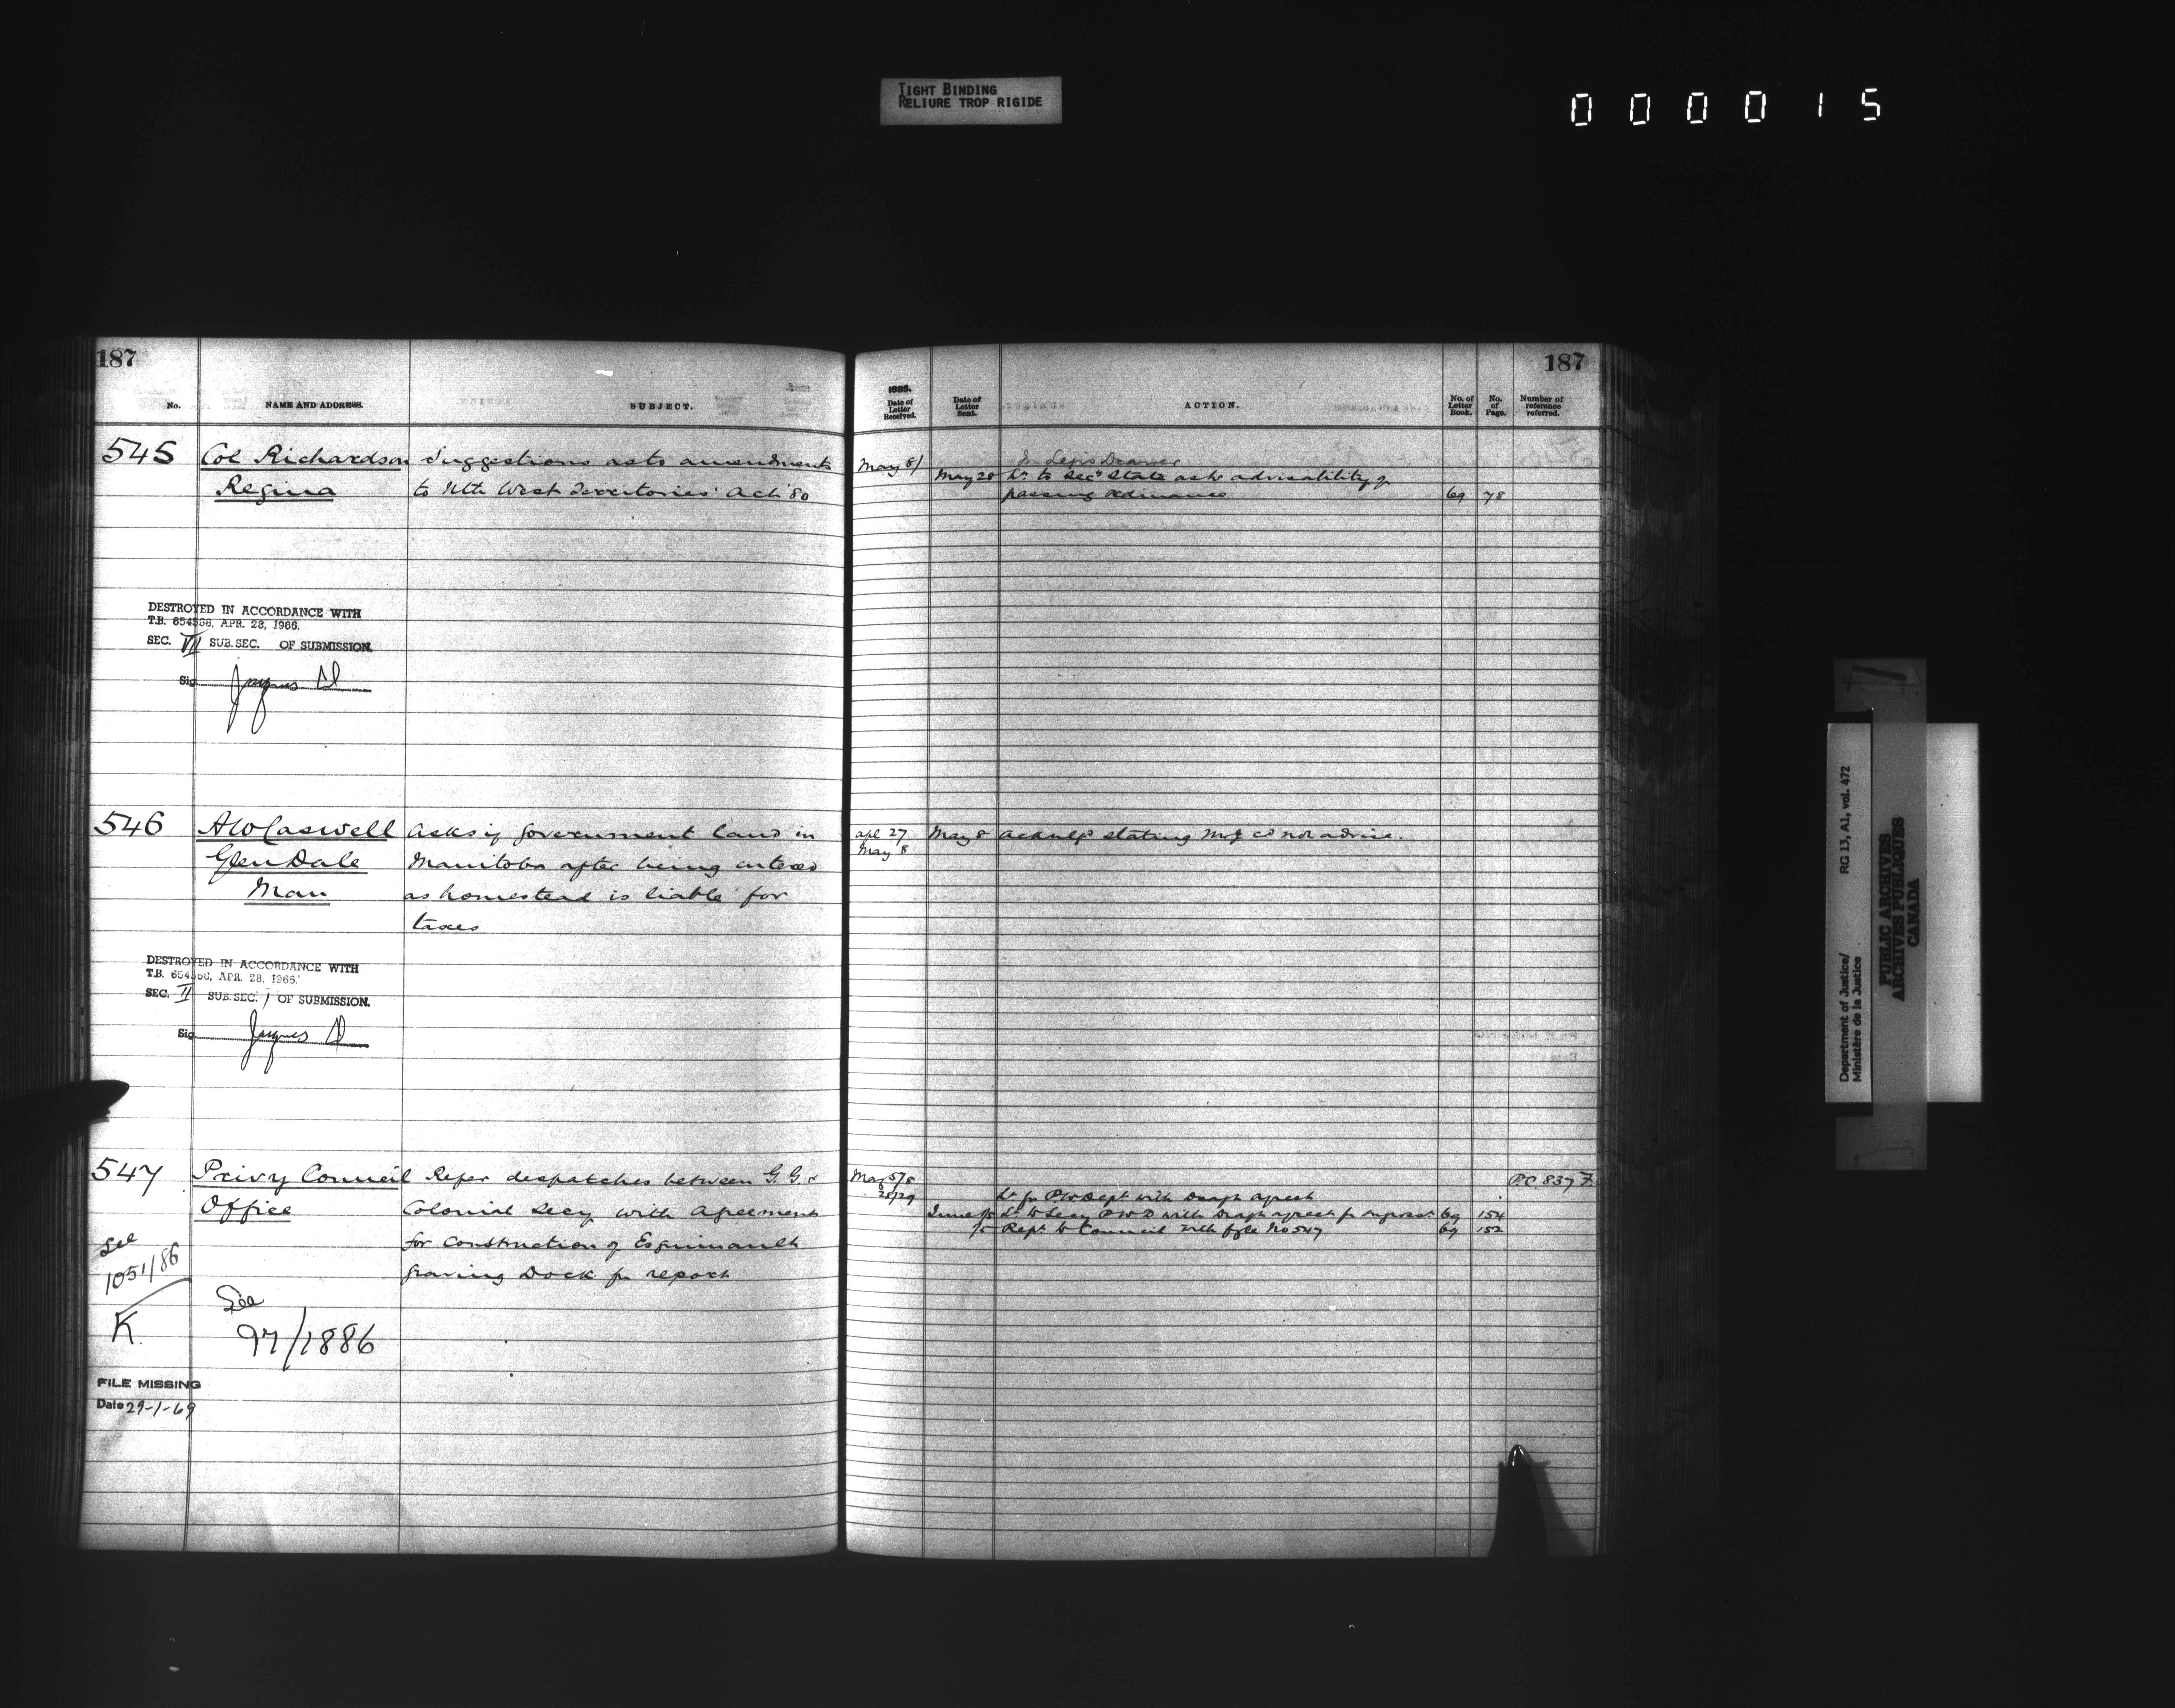 TIGHT BINDING
RELIURE TROP RIGIDE
000015
187
No. NAME AND ADDRESS. SUBJECT.
545 Col Richardson Suggestions as to amendments
Regina to Nth West Territories Act '80
DESTROYED IN ACCORDANCE WITH
T.B. 654366, APR. 28, 1966.
SEC. VII SUB.SEC. OF SUBMISSION.
Sig.
546 A W Caswell Asks if Government land in
Glen Dale Manitoba after being entered
Man as homestead is liable for
taxes
DESTROYED IN ACCORDANCE WITH
T.B. 654366, APR. 28, 1966.
SEC. II SUB.SEC. 1 OF SUBMISSION.
Sig.
547 Privy Council Refer despatches between G.G. &
Office Colonial Secy with Agreement
for construction of Esquimault
Graving Dock for report
See
1051/86
K.
See
97/1886
FILE MISSING
Date 29-1-69
187
1885.
Date of Letter Received. Date of Letter Sent. ACTION. No. of Letter Book. No. of Page. Number of reference referred.
May 8/ In Legis Drawer
May 28 Lr. to Secy State as to advisability of
passing ordinance 69 78
Apl 27 May 8 Ackulgd stating M of J cd not advise.
May 8
May 5/8 P.C. 837 F
28/29 Lr. fm P.W. Dept with Draft agreet
June 1/5 Lr. to Secy P.W.D with Draft agreet for 69 154
/5 Rept. to Council with file No 547 69 152
Department of Justice/
Ministère de la Justice
RG 13, A1, vol. 472
PUBLIC ARCHIVES
ARCHIVES PUBLIQUES
CANADA